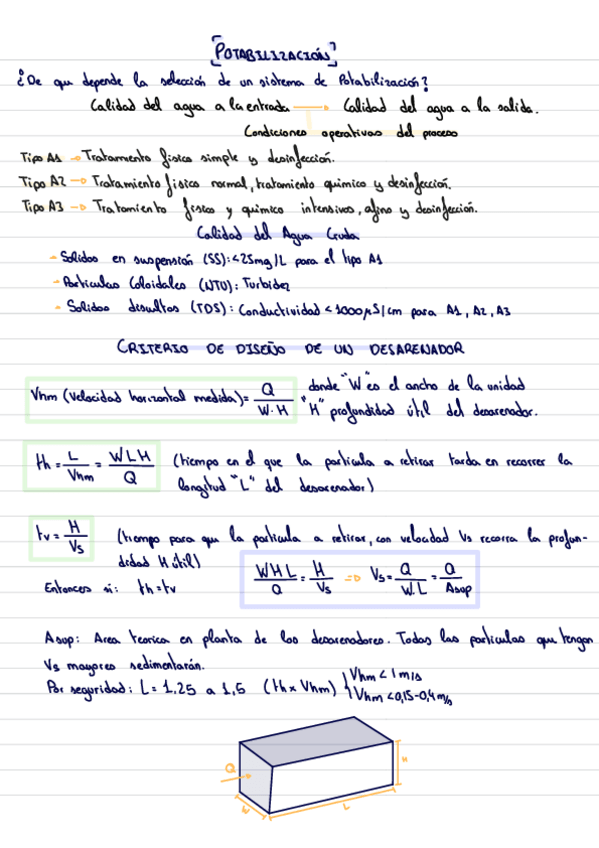 [POTABILIZACIÓN]
¿De que depende la selección de un sistema de Potabilización?
Calidad del agua a la entrada → Calidad del agua a la salida.
Condiciones operativas del proceso
Tipo A1 → Tratamiento físico simple y desinfección.
Tipo A2 → Tratamiento físico normal, tratamiento químico y desinfección.
Tipo A3 → Tratamiento físico y químico intensivos, afino y desinfección.
Calidad del Agua Cruda
- Solidos en suspensión (SS): <25mg/L para el tipo A1
- Particulas Coloidales (NTU): Turbidez
- Solidos disueltos (TDS): Conductividad <1000µS/cm para A1, A2, A3
CRITERIO DE DISEÑO DE UN DESARENADOR
Vhm (velocidad horizontal medida) = Q / W·H donde "W" es el ancho de la unidad
"H" profundidad útil del desarenador.
th = L / Vhm = WLH / Q (tiempo en el que la particula a retirar tarda en recorrer la
longitud "L" del desarenador)
tv = H / Vs (tiempo para que la particula a retirar, con velocidad Vs recorra la profun-
didad H útil)
Entonces si: th = tv WHL / Q = H / Vs ⇒ Vs = Q / W.L = Q / Asup
Asup: Area teorica en planta de los desarenadores. Todas las particulas que tengan
Vs mayores sedimentarán.
Por seguridad: L = 1,25 a 1,5 (th x Vhm) { Vhm < 1m/s
Vhm <0,15-0,4m/s
Q
W
L
H